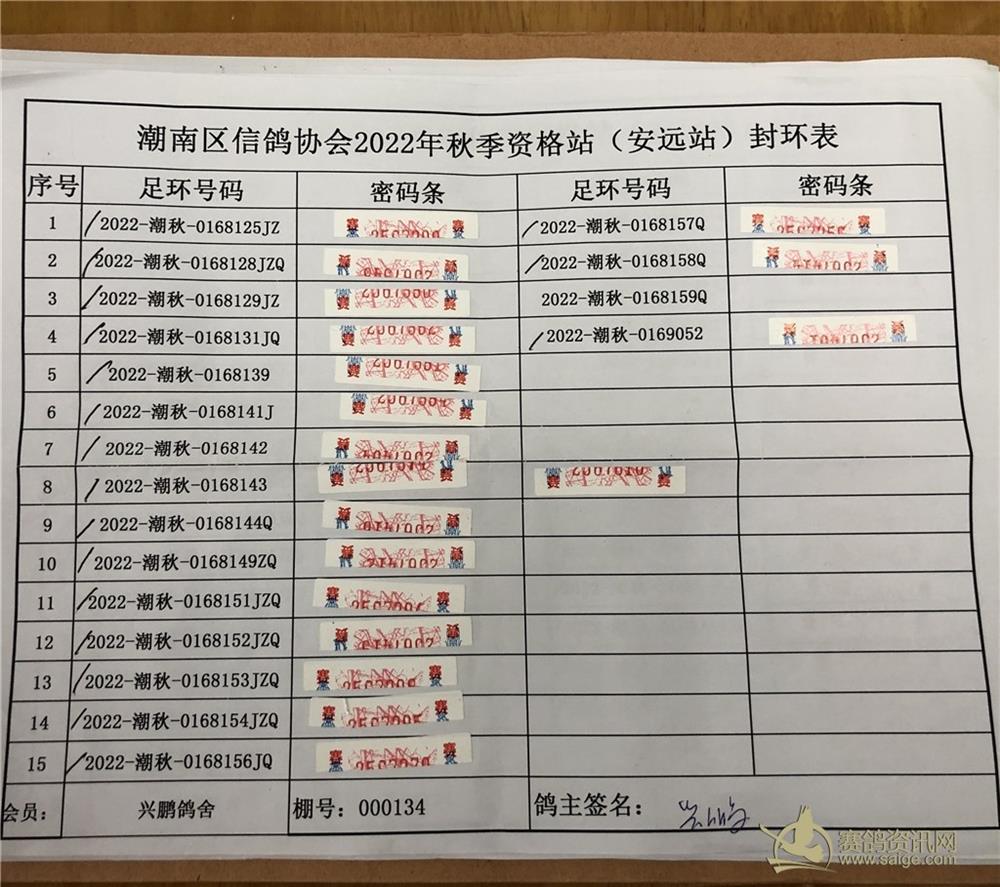 潮南区信鸽协会2022年秋季资格站（安远站）封环表
序号 足环号码 密码条 足环号码 密码条
1 2022-潮秋-0168125JZ 2022-潮秋-0168157Q
2 2022-潮秋-0168128JZQ 2022-潮秋-0168158Q
3 2022-潮秋-0168129JZ 2022-潮秋-0168159Q
4 2022-潮秋-0168131JQ 2022-潮秋-0169052
5 2022-潮秋-0168139
6 2022-潮秋-0168141J
7 2022-潮秋-0168142
8 2022-潮秋-0168143
9 2022-潮秋-0168144Q
10 2022-潮秋-0168149ZQ
11 2022-潮秋-0168151JZQ
12 2022-潮秋-0168152JZQ
13 2022-潮秋-0168153JZQ
14 2022-潮秋-0168154JZQ
15 2022-潮秋-0168156JQ
会员： 兴鹏鸽舍 棚号：000134 鸽主签名：
赛鸽资讯网
www.saige.com